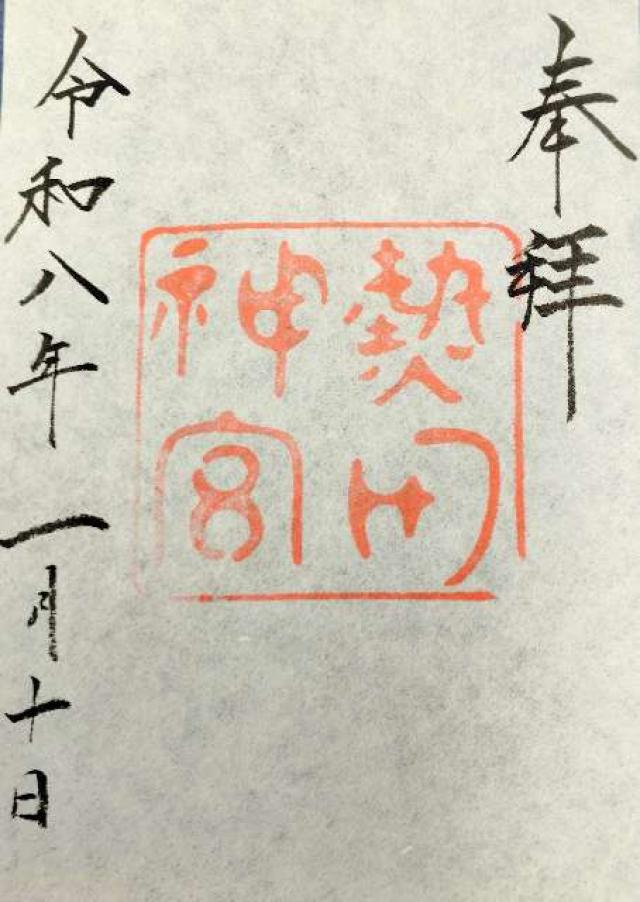 奉拝
熱田
神宮
令和八年一月十日